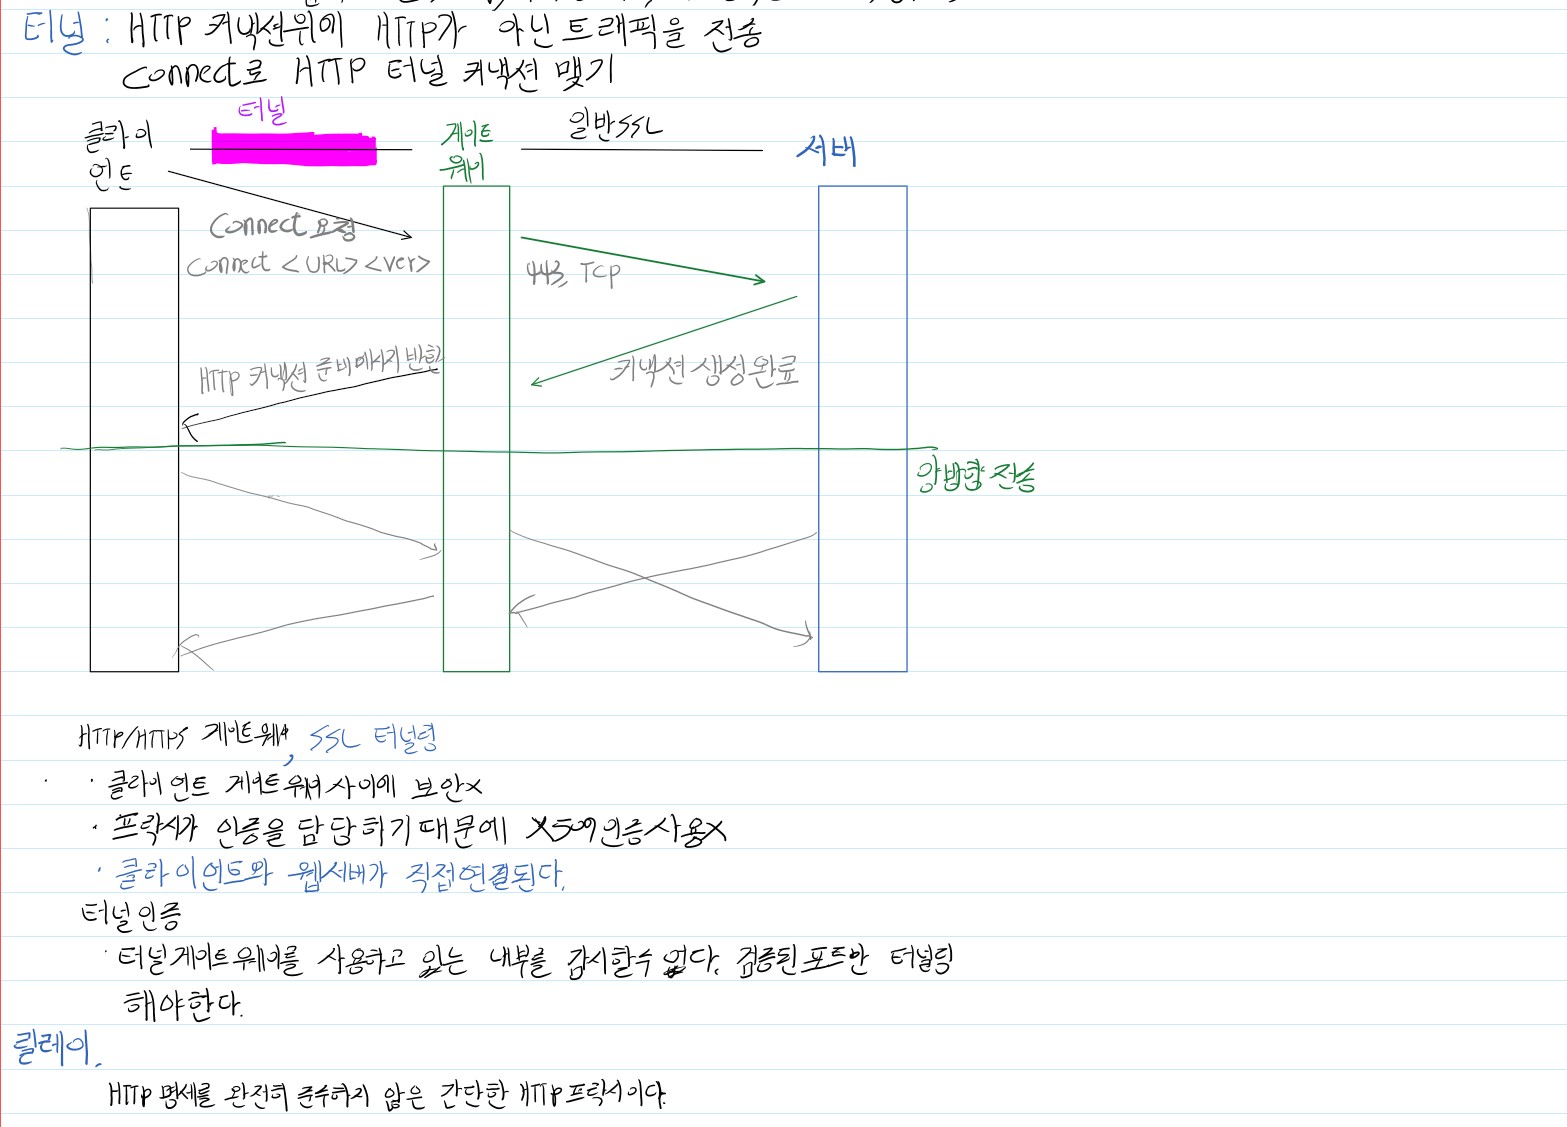 터널 : HTTP 커넥션위에 HTTP가 아닌 트래픽을 전송
Connect로 HTTP 터널 커넥션 맺기
터널
클라이
언트
게이트
웨이
일반SSL
서버
Connect 요청
Connect <URL> <ver>
443, TCP
HTTP 커넥션 준비메시지 반환
커넥션 생성완료
양방향 전송
HTTP/HTTPS 게이트웨이, SSL 터널링
· 클라이언트 게이트웨이 사이에 보안x
· 프락시가 인증을 담당하기때문에 X509인증사용x
· 클라이언트와 웹서버가 직접연결된다.
터널인증
· 터널게이트웨이를 사용하고 있는 내부를 감시할수 없다. 검증된포트만 터널링
해야한다.
릴레이.
HTTP 명세를 완전히 준수하지 않은 간단한 HTTP프락시이다.